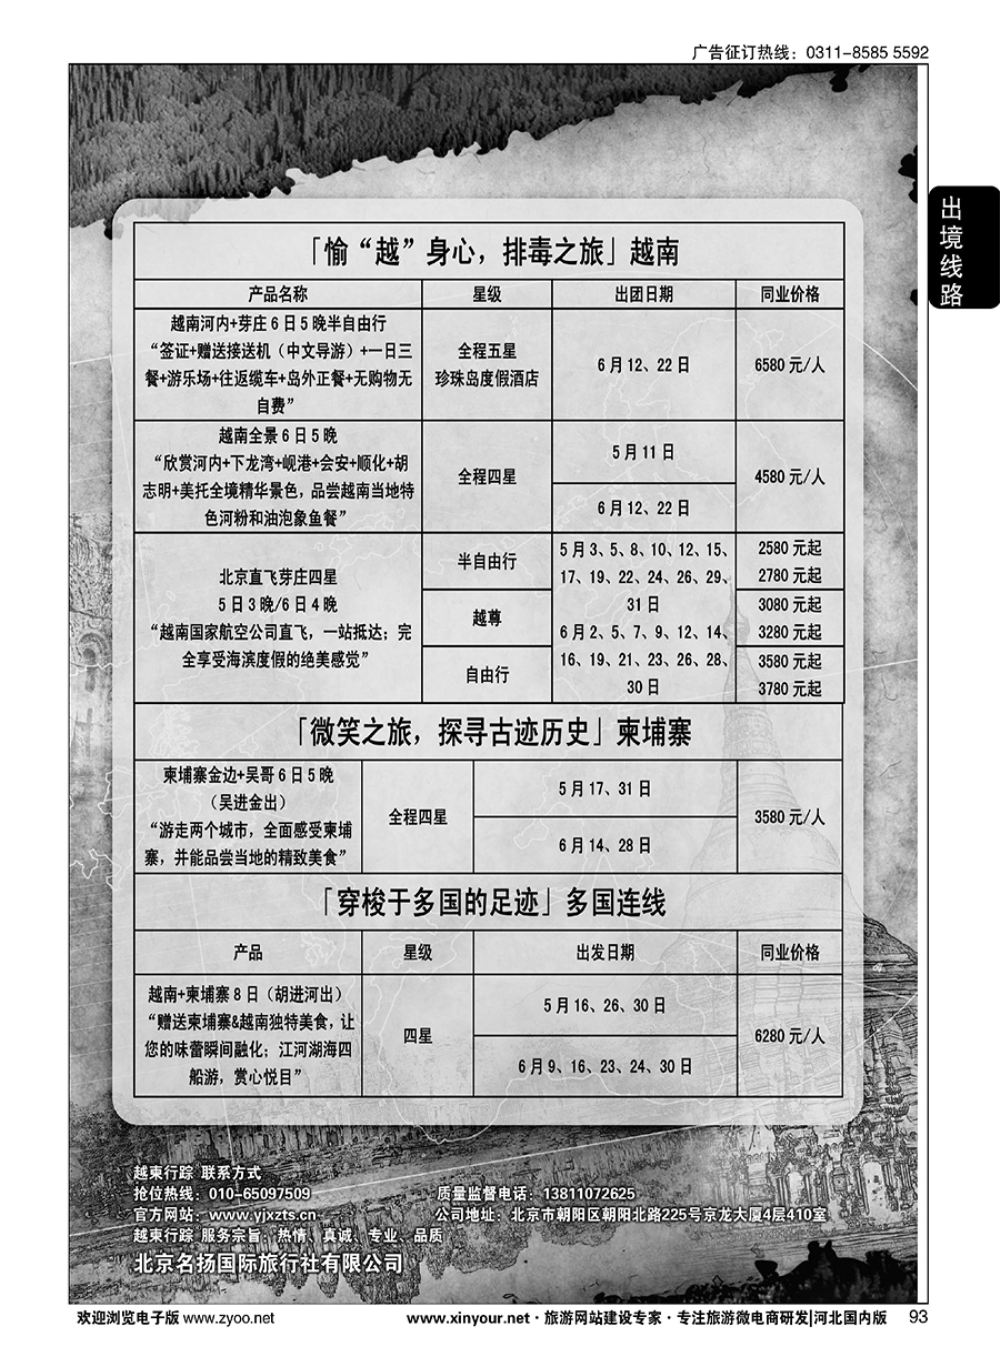 广告征订热线：0311-8585 5592
出境线路
「愉“越”身心，排毒之旅」越南
产品名称 星级 出团日期 同业价格
越南河内+芽庄 6 日 5 晚半自由行
“签证+赠送接送机（中文导游）+一日三
餐+游乐场+往返缆车+岛外正餐+无购物无
自费”
全程五星
珍珠岛度假酒店
6 月 12、22 日
6580 元/人
越南全景 6 日 5 晚
“欣赏河内+下龙湾+岘港+会安+顺化+胡
志明+美托全境精华景色，品尝越南当地特
色河粉和油泡象鱼餐”
全程四星
5 月 11 日
6 月 12、22 日
4580 元/人
北京直飞芽庄四星
5 日 3 晚/6 日 4 晚
“越南国家航空公司直飞，一站抵达；完
全享受海滨度假的绝美感觉”
半自由行
越尊
自由行
5 月 3、5、8、10、12、15、
17、19、22、24、26、29、
31 日
6 月 2、5、7、9、12、14、
16、19、21、23、26、28、
30 日
2580 元起
2780 元起
3080 元起
3280 元起
3580 元起
3780 元起
「微笑之旅，探寻古迹历史」柬埔寨
柬埔寨金边+吴哥 6 日 5 晚
（吴进金出）
“游走两个城市，全面感受柬埔
寨，并能品尝当地的精致美食”
全程四星
5 月 17、31 日
6 月 14、28 日
3580 元/人
「穿梭于多国的足迹」多国连线
产品 星级 出发日期 同业价格
越南+柬埔寨 8 日（胡进河出）
“赠送柬埔寨&越南独特美食，让
您的味蕾瞬间融化；江河湖海四
船游，赏心悦目”
四星
5 月 16、26、30 日
6 月 9、16、23、24、30 日
6280 元/人
越柬行踪 联系方式
抢位热线：010-65097509 质量监督电话：13811072625
官方网站：www.yjxzts.cn 公司地址：北京市朝阳区朝阳北路225号京龙大厦4层410室
越柬行踪 服务宗旨：热情、真诚、专业、品质
北京名扬国际旅行社有限公司
欢迎浏览电子版 www.zyoo.net www.xinyour.net · 旅游网站建设专家 · 专注旅游微电商研发|河北国内版 93